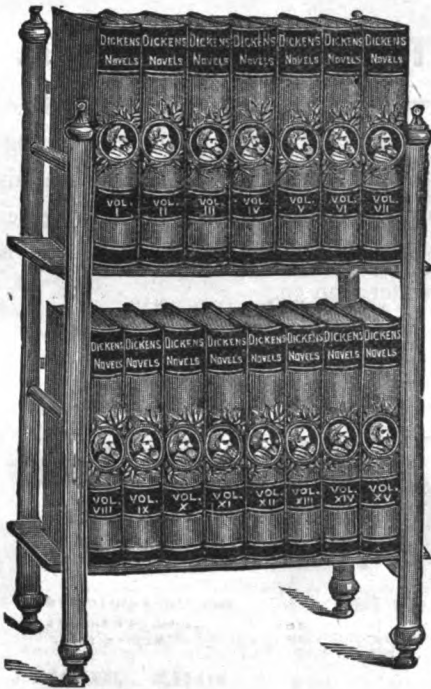 DICKENS NOVELS VOL. I
DICKENS NOVELS VOL. II
DICKENS NOVELS VOL. III
DICKENS NOVELS VOL. IV
DICKENS NOVELS VOL. V
DICKENS NOVELS VOL. VI
DICKENS NOVELS VOL. VII
DICKENS NOVELS VOL. VIII
DICKENS NOVELS VOL. IX
DICKENS NOVELS VOL. X
DICKENS NOVELS VOL. XI
DICKENS NOVELS VOL. XII
DICKENS NOVELS VOL. XIII
DICKENS NOVELS VOL. XIV
DICKENS NOVELS VOL. XV